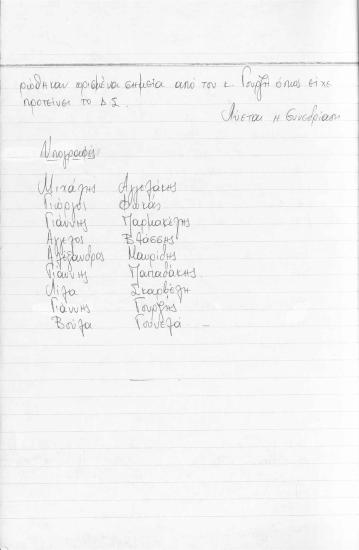 ρώθηκαν ορισμένα σημεία από τον κ. Γουρζή όπως είχε
προτείνει το Δ.Σ.
Λύεται η Συνεδρίαση
Υπογραφές
Μιχάλης Αγγελάκης
Γιώργος Φωκάς
Γιάννης Μαρμακέλης
Άγγελος Βλάσσης
Αλέξανδρος Μαυρίδης
Γιάννης Παπαδάκης
Λίλα Σκαρβέλη
Γιάννης Γουρζής
Βούλα Γουνελά